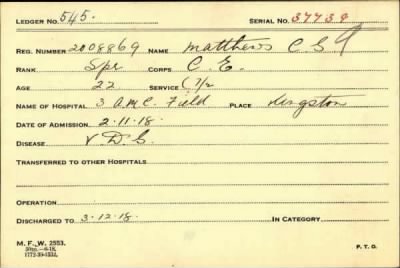 LEDGER NO. 545. SERIAL NO. 37739
REG. NUMBER 2008869 NAME Matthews C. S.
RANK Spr CORPS C. E.
AGE 22 SERVICE (7/12
NAME OF HOSPITAL 3 A.M.C. Field PLACE Kingston
DATE OF ADMISSION 2-11-18.
DISEASE V D G.
TRANSFERRED TO OTHER HOSPITALS
OPERATION
DISCHARGED TO 3-12-18. IN CATEGORY
M. F. W. 2553. P. T. O.
1772-39-1332.